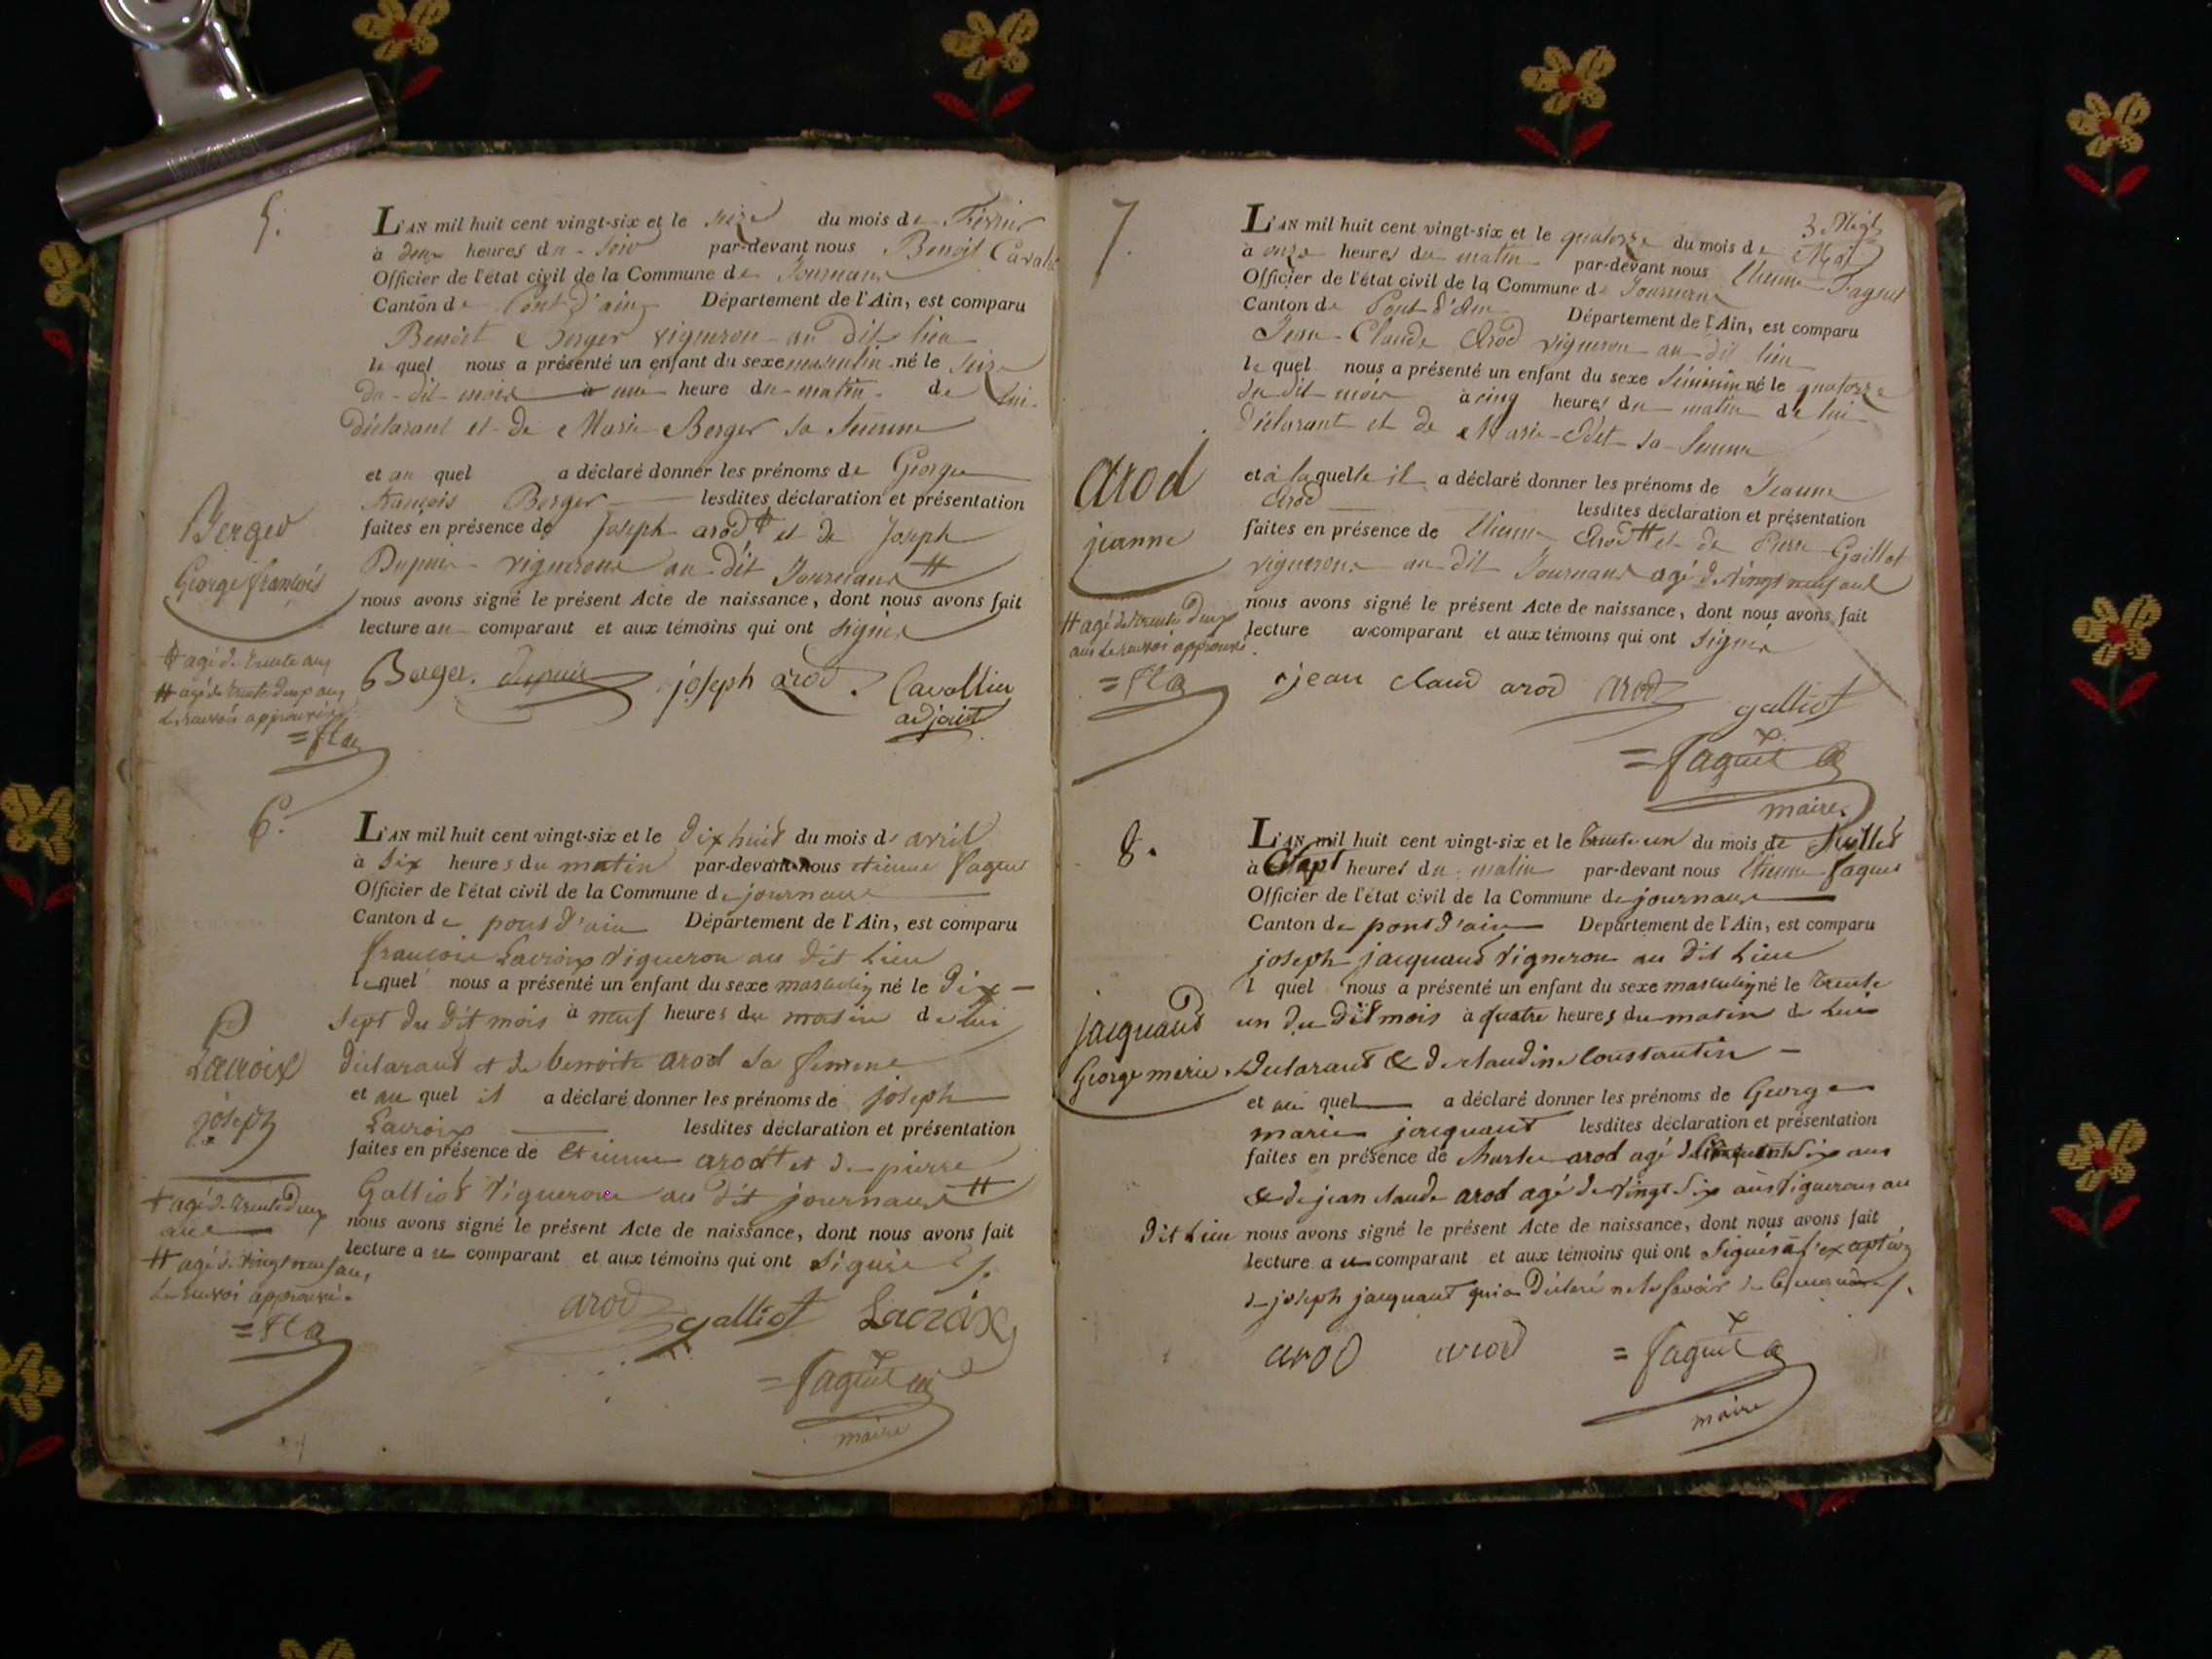 5.
L'AN mil huit cent vingt-six et le seize du mois de Février
à deux heures du soir par-devant nous Benoit Cavalli
Officier de l'état civil de la Commune de Journans
Canton de Pont d'ain Département de l'Ain, est comparu
Benoit Berger vigneron au dit lieu
le quel nous a présenté un enfant du sexe masculin né le seize
du dit mois à une heure du matin de lui
déclarant et de Marie Berger sa femme
et au quel a déclaré donner les prénoms de George
françois Berger lesdites déclaration et présentation
faites en présence de Joseph arod ‡ et de Joseph
Dupuis vignerons au dit Journans #
nous avons signé le présent Acte de naissance, dont nous avons fait
lecture au comparant et aux témoins qui ont signés
Berger
George françois
‡ agé de trente ans
# agé de trente deux ans
Le renvois approuvés
= fta
Berger. dupuis joseph arod. Cavallin
adjoint
6.
L'AN mil huit cent vingt-six et le dix huit du mois d' avril
à six heures du matin par-devant nous etienne faguet
Officier de l'état civil de la Commune de journans
Canton de pont d'ain Département de l'Ain, est comparu
françois Lacroix vigneron au dit Lieu
lequel nous a présenté un enfant du sexe masculin né le dix
sept du dit mois à neuf heures du matin de lui
déclarant et de benoite arod sa femme
et au quel il a déclaré donner les prénoms de joseph
Lacroix lesdites déclaration et présentation
faites en présence de etienne arod † et de pierre
Galliot vignerons au dit journans #
nous avons signé le présent Acte de naissance, dont nous avons fait
lecture au comparant et aux témoins qui ont signés
Lacroix
joseph
† agé de trente deux
ans
# agé de vingt neuf ans,
Le renvoi approuvé.
= fta
arod galliot Lacroix
= faguet
maire
7.
L'AN mil huit cent vingt-six et le quatorze du mois de Mai
à onze heures du matin par-devant nous Etienne Faguet
Officier de l'état civil de la Commune de Journans
Canton de Pont d'Ain Département de l'Ain, est comparu
Jean Claude Arod vigneron au dit lieu
le quel nous a présenté un enfant du sexe féminin né le quatorze
du dit mois à cinq heures du matin de lui
déclarant et de Marie sa femme
et à laquelle il a déclaré donner les prénoms de Jeanne
Arod lesdites déclaration et présentation
faites en présence de Etienne Arod # et de Pierre Galliot
vignerons au dit Journans agé de vingt neuf ans
nous avons signé le présent Acte de naissance, dont nous avons fait
lecture au comparant et aux témoins qui ont signé
arod
jeanne
# agé de trente deux
ans Le renvoi approuvé.
= fta
jean claud arod arod galliot
= faguet
maire
8.
L'AN mil huit cent vingt-six et le trente un du mois de Juillet
à Sept heures du matin par-devant nous Etienne faguet
Officier de l'état civil de la Commune de journans
Canton de pont d'ain Département de l'Ain, est comparu
joseph jacquand vigneron au dit Lieu
l quel nous a présenté un enfant du sexe masculin né le trente
un du dit mois à quatre heures du matin de Lui
déclarant & de claudine Constantin
et au quel a déclaré donner les prénoms de George
marie jacquant lesdites déclaration et présentation
faites en présence de charles arod agé de cinquante six ans
& de jean claude arod agé de vingt six ans vignerons au
dit Lieu nous avons signé le présent Acte de naissance, dont nous avons fait
lecture au comparant et aux témoins qui ont signés à l'exception
de joseph jacquant qui a déclaré ne le savoir de ce
jacquand
George marie
arod arod = faguet
maire